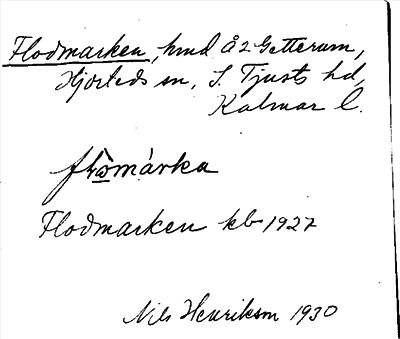 Flodmarken, hmd å 2 Getterum,
Hjorteds sn, S. Tjusts hd,
Kalmar l.
flωmárka
Flodmarken kb 1927
Nils Henrikson 1930